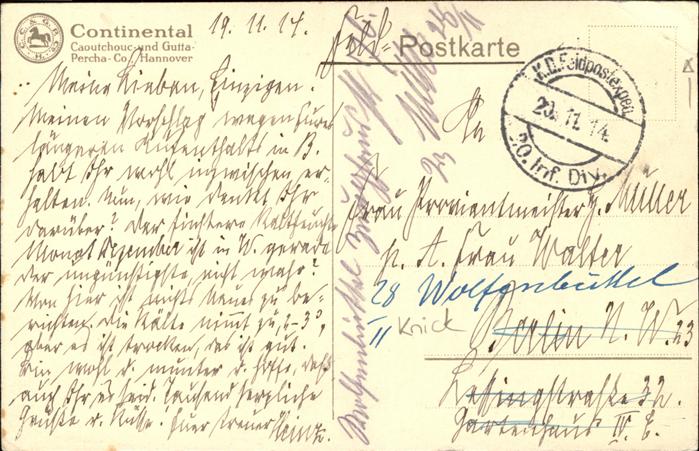 Continental
Caoutchouc- und Gutta-
Percha-Co., Hannover
19. 11. 14.
Feld-Postkarte
K.D. Feldpostexped.
20. 11. 14.
20. Inf. Div.
Meine Lieben, Einzigen.
Meinen Vorschlag wegen Eures
längeren Aufenthalts in B.
habt Ihr wohl inzwischen er-
halten. Nun, wie denkt Ihr
darüber? Der finstere
Monat Dezember ist in W. gerade
der ungünstigste, nicht wahr?
Von hier ist nichts Neues zu be-
richten. Die Kälte nimmt zu, 2-3°,
aber es ist trocken, das ist gut.
Bin wohl u. munter u. hoffe, daß
auch Ihr es seid. Tausend herzliche
Grüße u. Küsse. Euer treuer Heinz.
An
Frau Proviantmeister H. Müller
p. A. Frau Walter
28 Wolfenbüttel
II
Knick
Berlin N. W. 23
Lessingstraße 32.
Gartenhaus IV. E.
Wolfenbüttel
zu
25/11